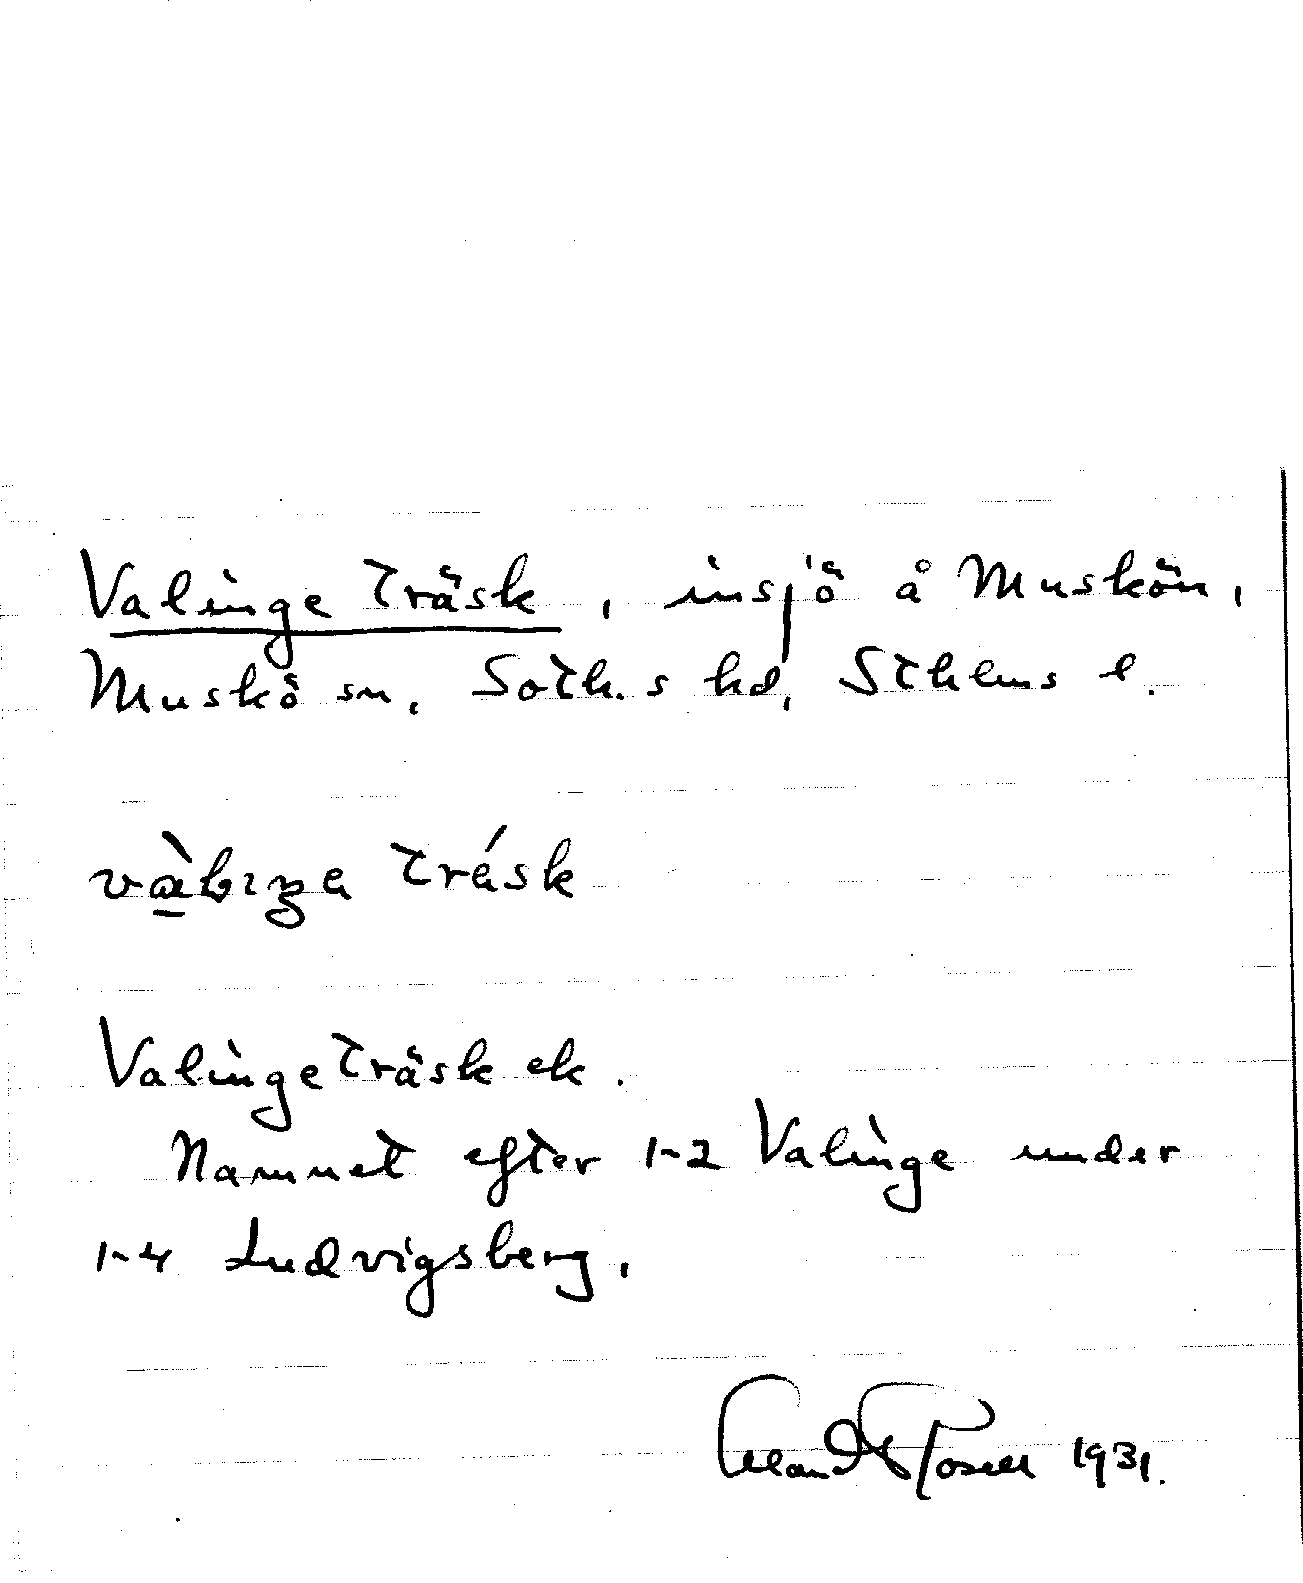 Valinge träsk, insjö å Muskön,
Muskö sn, Soth.s hd, Sthlms l.
träsk
Valingeträsk ek.
Namnet efter 1-2 Valinge under
1-4 Ludvigsberg.
Erland Rosell 1931.